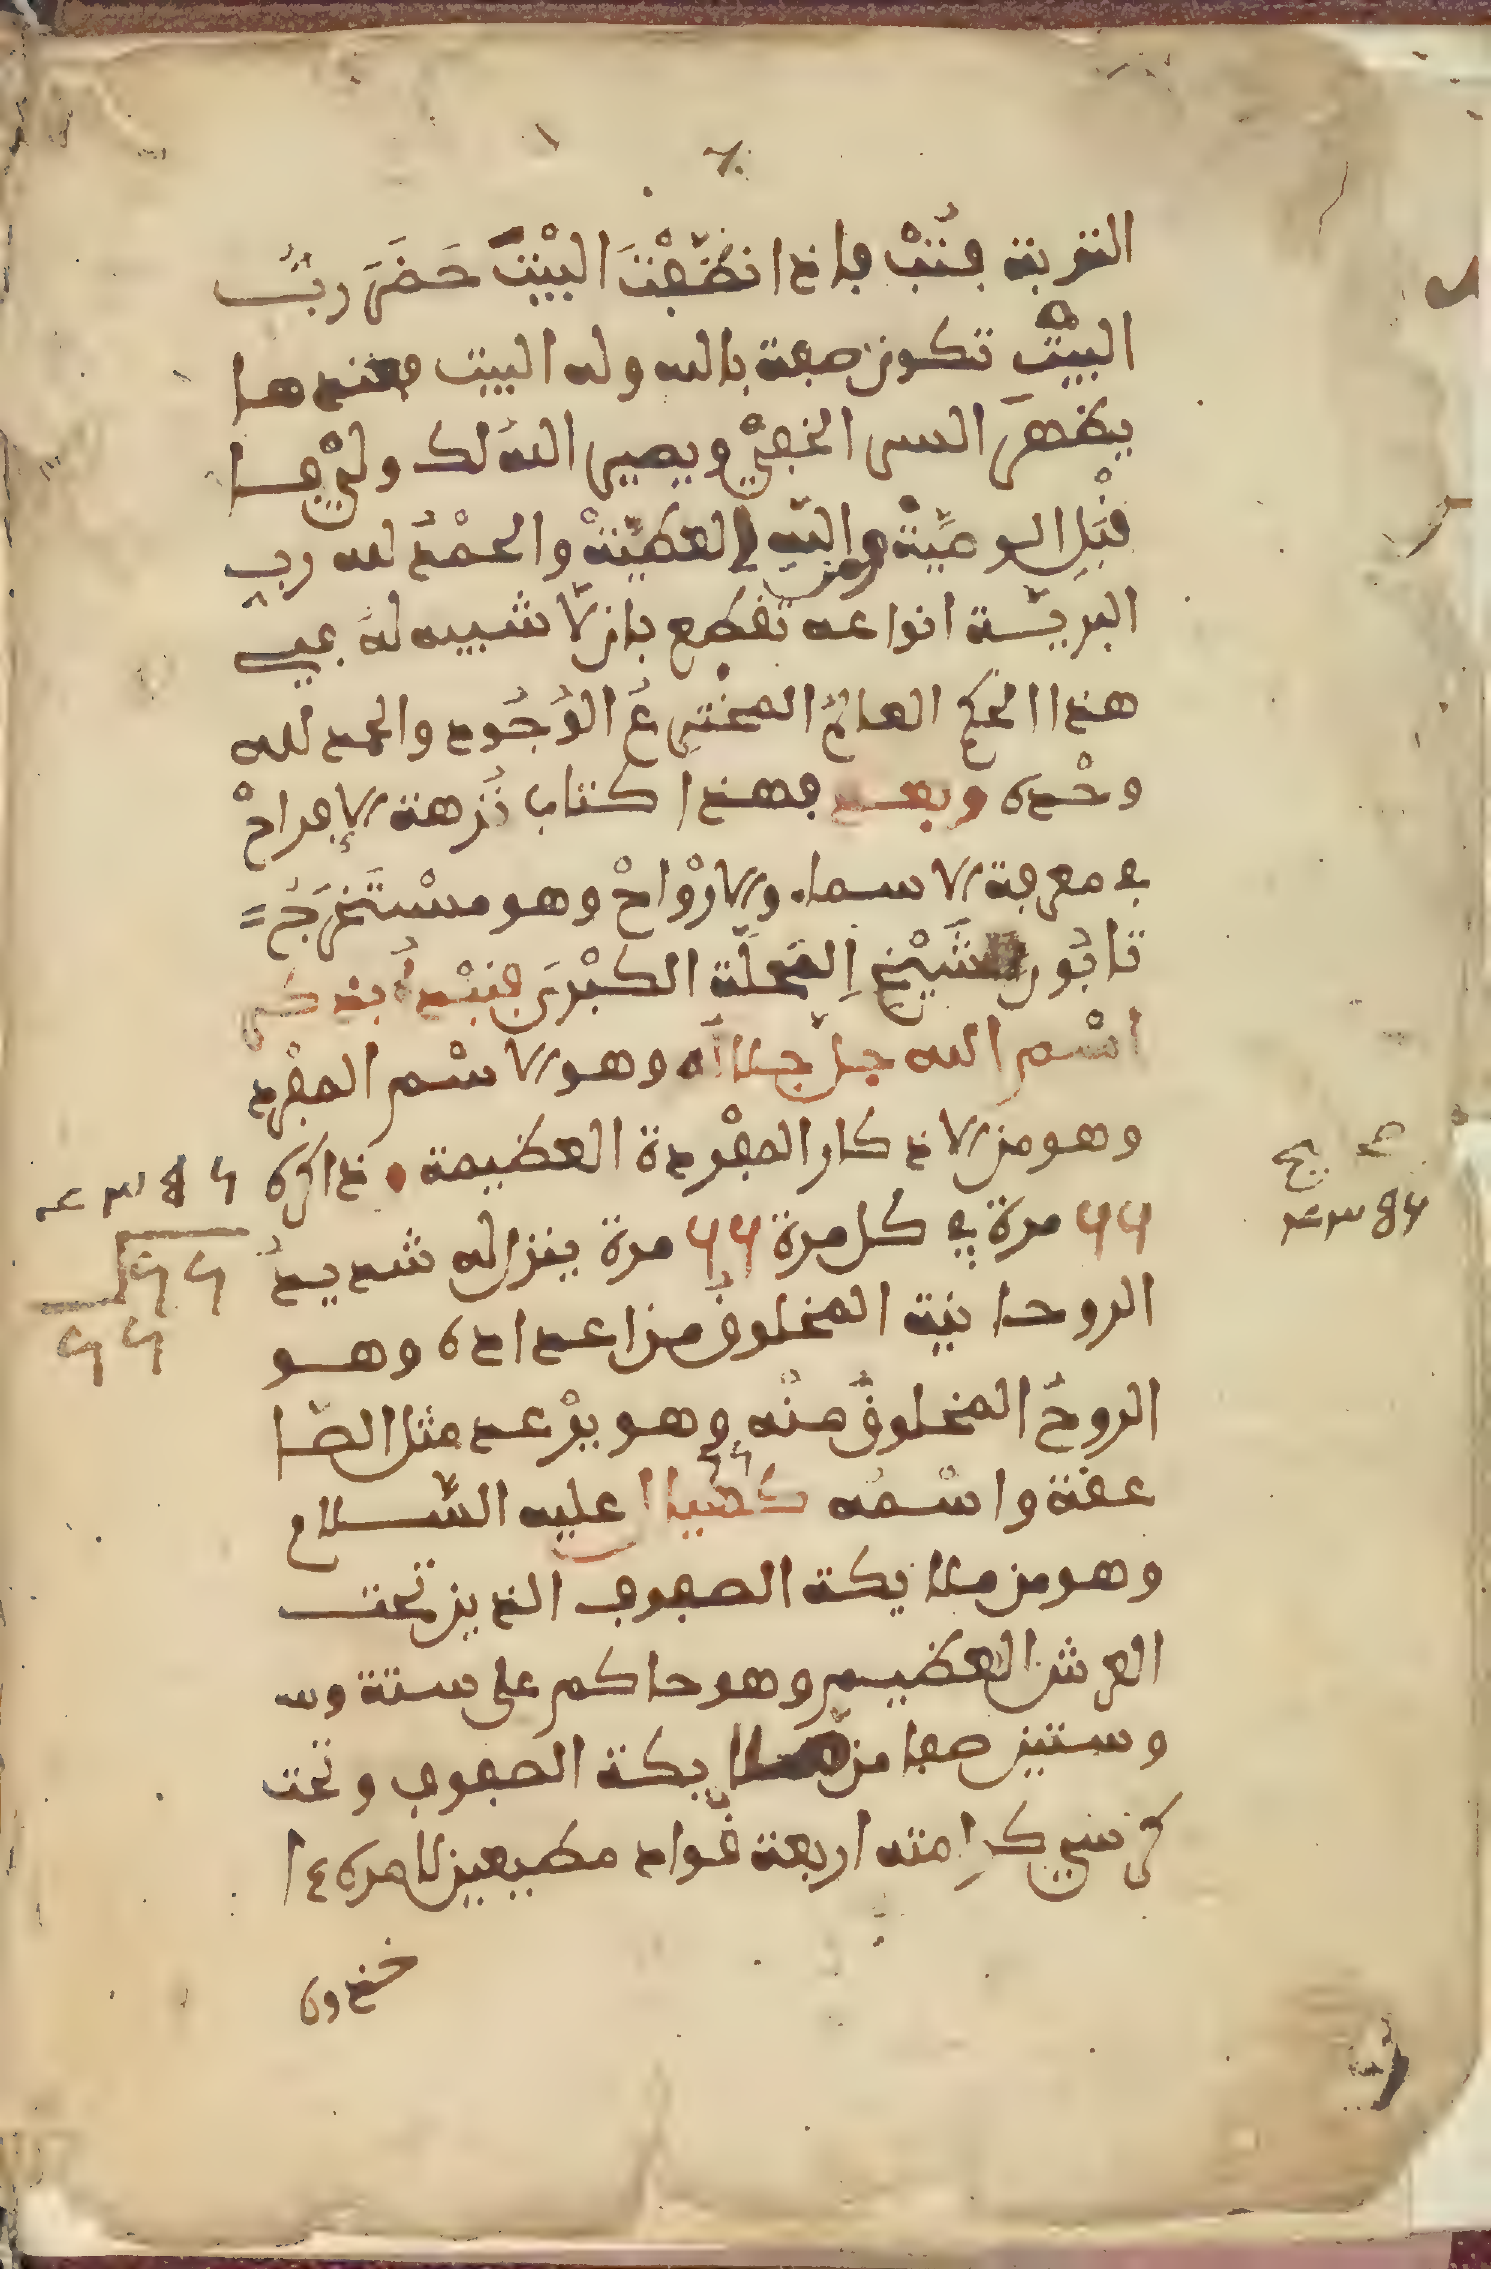 التربة فتب فإذا نظفت البيت حضر رب
البيت تكون صفة بالله وله البيت فعندها
يظهر السر الخفي ويصير الله لك ولي فا
قبل الوصية والعطية والحمد لله رب
البرية انواعه تقطع بان لا شبيه له في
هذا الحكم العالم المخترع الوجود والحمد لله
وحده وبعد فهذا كتاب نزهة الافراح
في معرفة الاسماء والارواح وهو مستخرج =
تابور الشيخ الكبرى فنبدأ بذكر
اسم الله جل جلاله وهو الاسم المفرد
وهو من الاذكار المفردة العظيمة ذاكره
٦٦ مرة في كل مرة ٦٦ مرة ينزل له شديد
الروحانية المخلوق من اعداده وهو
الروح المخلوق منه وهو يرعد مثل الصا
عقة واسمه كهيال عليه السلام
وهو من ملايكة الصفوف الذين تحت
العرش العظيم وهو حاكم على ستة وس
وستين صفا من ملايكة الصفوف وتحت
كرسي كرامته اربعة قواد مطيعين لامره ٤ ا
خذوه